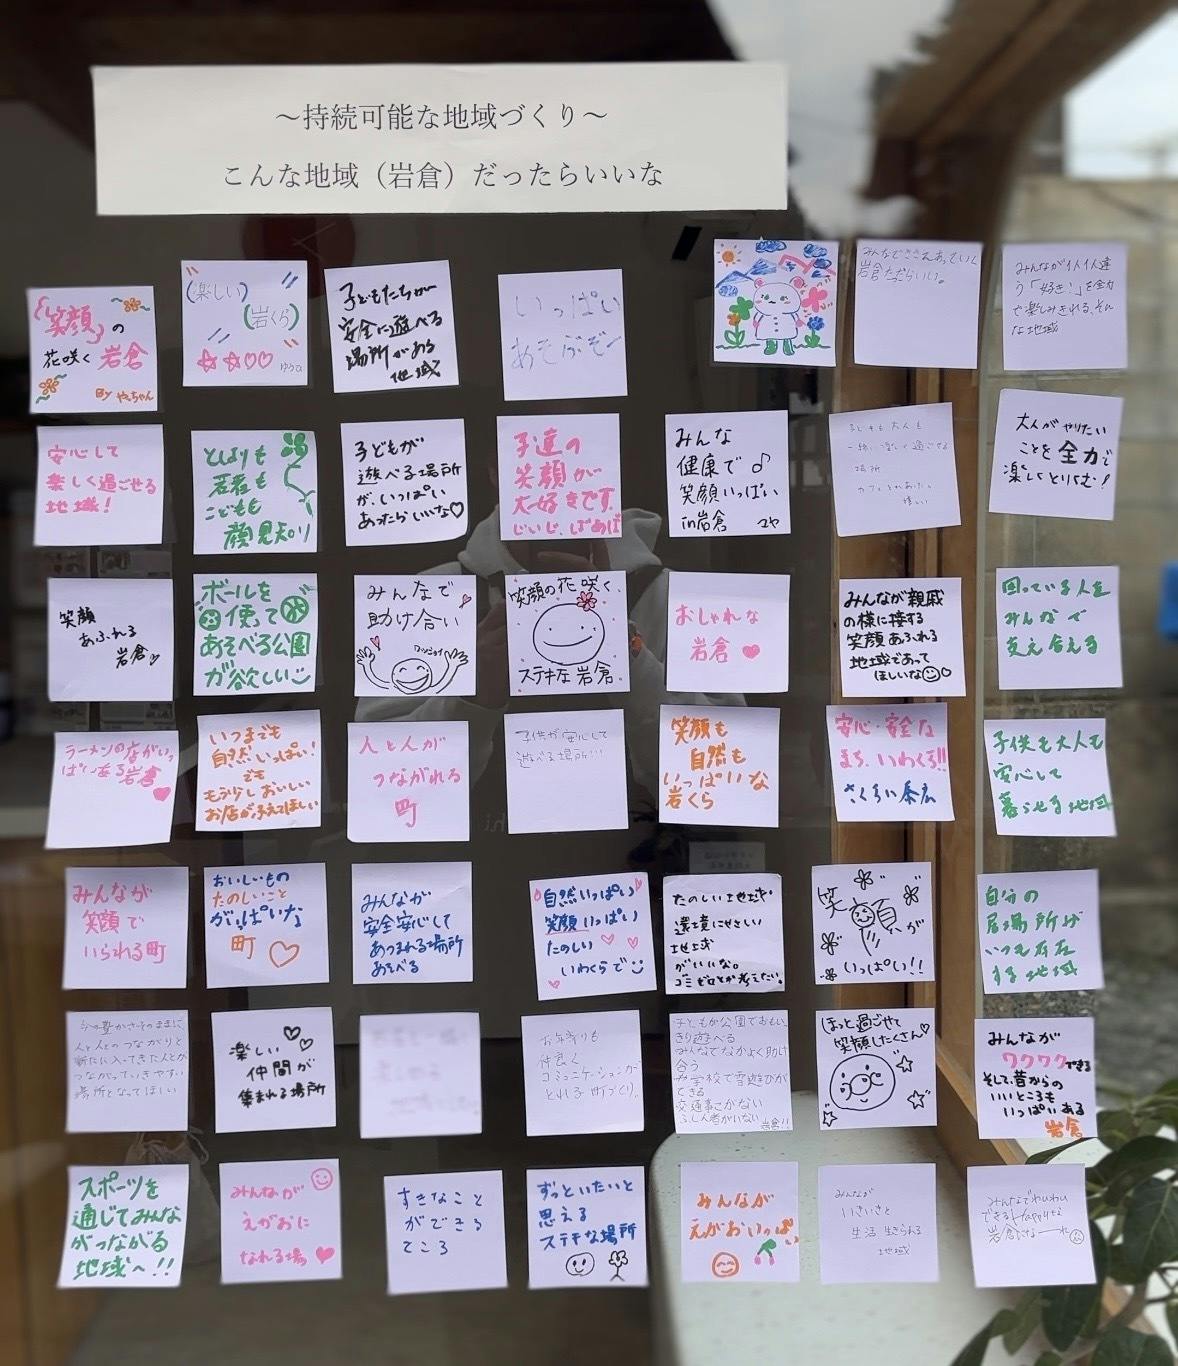 ～持続可能な地域づくり～
こんな地域（岩倉）だったらいいな
「笑顔」の
花咲く 岩倉
By やぇちゃん
（楽しい）
（岩くら）
ゆうひ
子どもたちが
安全に遊べる
場所がある
地域
いっぱい
あそぶぞー
みんなでささえあっていく
岩倉だったらいい。
みんなが1人1人違
う「好き！」を全力
で楽しみきれる、そん
な地域
安心して
楽しく過ごせる
地域！
としよりも
若者も
こどもも
顔見知り
子どもが
遊べる場所
が、いっぱい
あったらいいな♡
子達の
笑顔が
大好きです。
じいじ、ばあば
みんな
健康で♪
笑顔いっぱい
in岩倉 マヤ
子どもも大人も
一緒に楽しく過ごせる
場所
大人がやりたい
ことを全力で
楽しくとりくむ！
笑顔
あふれる
岩倉♡
ボールを
使って
あそべる公園
が欲しい
みんなで
助け合い
笑顔の花咲く、
ステキな岩倉
おしゃれな
岩倉
みんなが親戚
の様に接する
笑顔あふれる
地域であって
ほしいな
困っている人を
みんなで
支え合える
ラーメンの店がいっ
ぱいある岩倉
いつまでも
自然いっぱい！
でも
もう少しおいしい
お店が ふえてほしい
人と人が
つながれる
町
子供が安心して
遊べる場所!!!
笑顔も
自然も
いっぱいな
岩くら
安心・安全な
まち いわくら!!
子供も大人も
安心して
暮らせる地域
みんなが
笑顔で
いられる町
おいしいもの
たのしいこと
がいっぱいな
町♡
みんなが
安全安心して
あつまれる場所
あそべる
自然いっぱい
笑顔いっぱい
たのしい
いわくらで
たのしい地域
環境にやさしい
地域
がいいな。
ゴミゼロとか考えたい。
笑顔が
いっぱい!!
自分の
居場所が
いつも存在
する地域
今の豊かさそのままに、
人と人とのつながりと
新たに入ってきた人とが
つながっていきやすい
場所となってほしい
楽しい
仲間が
集まれる場所
お年寄りも
仲良く
コミュニケーションが
とれる町づくり。
子どもが公園でおもいっ
きり遊べる
みんなでなかよく助け
合う
学校で雪遊びが
できる
交通事こがない
ふしん者がいない
岩倉!!
ほっと過ごせて
笑顔たくさん♡
みんなが
ワクワクできる
そして、昔からの
いいところも
いっぱいある
岩倉
スポーツを
通じてみんな
がつながる
地域へ!!
みんなが
えがおに
なれる場
すきなこと
ができる
ところ
ずっといたいと
思える
ステキな場所
みんなが
えがおいっぱい
みんなが
いきいきと
生活 生きられる
地域
みんなでわいわい
できるhappyな
岩倉にな～～れ